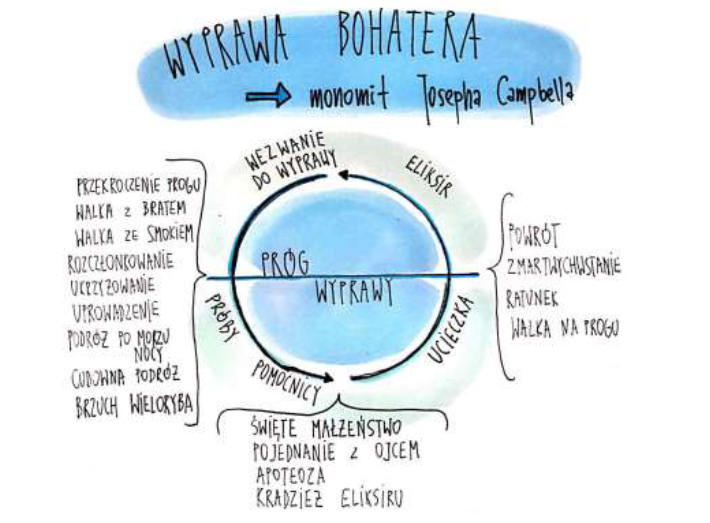 WYPRAWA BOHATERA
monomit Josepha Campbella
WEZWANIE
DO WYPRAWY
ELIKSIR
PRZEKROCZENIE PROGU
WALKA Z BRATEM
WALKA ZE SMOKIEM
ROZCZŁONKOWANIE
UKRZYŻOWANIE
UPROWADZENIE
PODRÓŻ PO MORZU
NOCY
CUDOWNA PODRÓŻ
BRZUCH WIELORYBA
PRÓG
WYPRAWY
PRÓBY
POMOCNICY
UCIECZKA
POWRÓT
ZMARTWYCHWSTANIE
RATUNEK
WALKA NA PROGU
ŚWIĘTE MAŁŻEŃSTWO
POJEDNANIE Z OJCEM
APOTEOZA
KRADZIEŻ ELIKSIRU